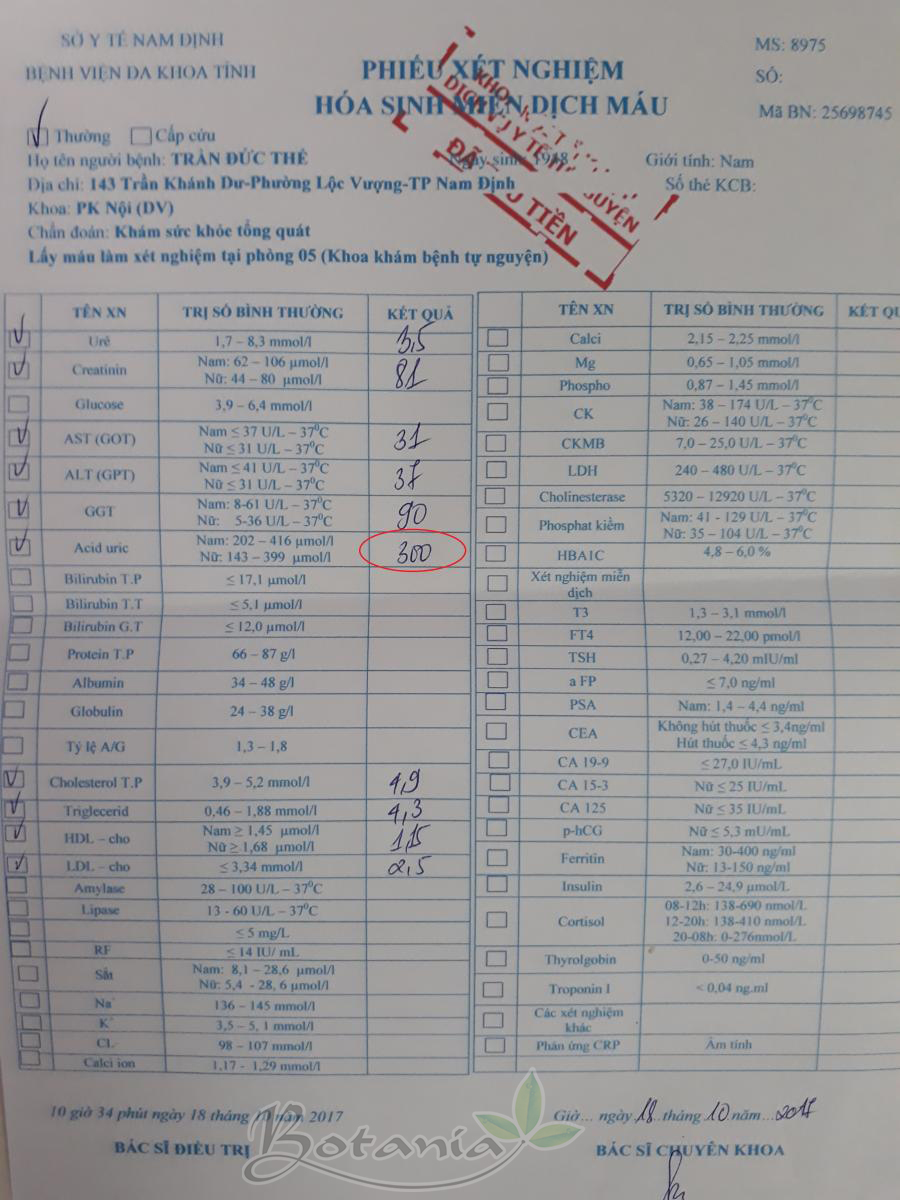 SỞ Y TẾ NAM ĐỊNH
BỆNH VIỆN ĐA KHOA TỈNH
PHIẾU XÉT NGHIỆM
HÓA SINH MIỄN DỊCH MÁU
MS: 8975
SỐ:
Mã BN: 25698745
Thường Cấp cứu
Họ tên người bệnh: TRẦN ĐỨC THẾ Ngày sinh: 1948 Giới tính: Nam
Địa chỉ: 143 Trần Khánh Dư-Phường Lộc Vượng-TP Nam Định Số thẻ KCB:
Khoa: PK Nội (DV)
Chẩn đoán: Khám sức khỏe tổng quát
Lấy máu làm xét nghiệm tại phòng 05 (Khoa khám bệnh tự nguyện)
TIỀN
TÊN XN TRỊ SỐ BÌNH THƯỜNG KẾT QUẢ
Urê 1,7 – 8,3 mmol/l 3,5
Creatinin Nam: 62 – 106 µmol/l 81
Nữ: 44 – 80 µmol/l
Glucose 3,9 – 6,4 mmol/l
AST (GOT) Nam ≤ 37 U/L – 37⁰C 31
Nữ ≤ 31 U/L – 37⁰C
ALT (GPT) Nam ≤ 41 U/L – 37⁰C 37
Nữ ≤ 31 U/L – 37⁰C
GGT Nam: 8-61 U/L – 37⁰C 90
Nữ: 5-36 U/L – 37⁰C
Acid uric Nam: 202 – 416 µmol/l 300
Nữ: 143 – 399 µmol/l
Bilirubin T.P ≤ 17,1 µmol/l
Bilirubin T.T ≤ 5,1 µmol/l
Bilirubin G.T ≤ 12,0 µmol/l
Protein T.P 66 – 87 g/l
Albumin 34 – 48 g/l
Globulin 24 – 38 g/l
Tỷ lệ A/G 1,3 – 1,8
Cholesterol T.P 3,9 – 5,2 mmol/l 4,9
Triglecerid 0,46 – 1,88 mmol/l 4,3
HDL – cho Nam ≥ 1,45 µmol/l 1,15
Nữ ≥ 1,68 µmol/l
LDL – cho ≤ 3,34 mmol/l 2,5
Amylase 28 – 100 U/L – 37⁰C
Lipase 13 - 60 U/L – 37⁰C
≤ 5 mg/L
RF ≤ 14 IU/ mL
Sắt Nam: 8,1 – 28,6 µmol/l
Nữ: 5,4 - 28, 6 µmol/l
Na⁺ 136 – 145 mmol/l
K⁺ 3,5 – 5, 1 mmol/l
CL⁻ 98 – 107 mmol/l
Calci ion 1,17 - 1,29 mmol/l
TÊN XN TRỊ SỐ BÌNH THƯỜNG KẾT QU
Calci 2,15 – 2,25 mmol/l
Mg 0,65 – 1,05 mmol/l
Phospho 0,87 – 1,45 mmol/l
CK Nam: 38 – 174 U/L – 37⁰C
Nữ: 26 – 140 U/L – 37⁰C
CKMB 7,0 – 25,0 U/L – 37⁰C
LDH 240 – 480 U/L – 37⁰C
Cholinesterase 5320 – 12920 U/L – 37⁰C
Phosphat kiềm Nam: 41 - 129 U/L – 37⁰C
Nữ: 35 – 104 U/L – 37⁰C
HBA1C 4,8 – 6,0 %
Xét nghiệm miễn
dịch
T3 1,3 – 3,1 mmol/l
FT4 12,00 – 22,00 pmol/l
TSH 0,27 – 4,20 mIU/ml
a FP ≤ 7,0 ng/ml
PSA Nam: 1,4 – 4,4 ng/ml
CEA Không hút thuốc ≤ 3,4ng/ml
Hút thuốc ≤ 4,3 ng/ml
CA 19-9 ≤ 27,0 IU/mL
CA 15-3 Nữ ≤ 25 IU/mL
CA 125 Nữ ≤ 35 IU/mL
p-hCG Nữ ≤ 5,3 mU/mL
Ferritin Nam: 30-400 ng/ml
Nữ: 13-150 ng/ml
Insulin 2,6 – 24,9 µmol/L
Cortisol 08-12h: 138-690 nmol/L
12-20h: 138-410 nmol/L
20-08h: 0-276nmol/L
Thyrolgobin 0-50 ng/ml
Troponin I < 0,04 ng.ml
Các xét nghiệm
khác
Phản ứng CRP Âm tính
10 giờ 34 phút ngày 18 tháng 10 năm 2017
BÁC SĨ ĐIỀU TRỊ
Giờ... ngày 18 tháng 10 năm ... 2017
BÁC SĨ CHUYÊN KHOA
Botania